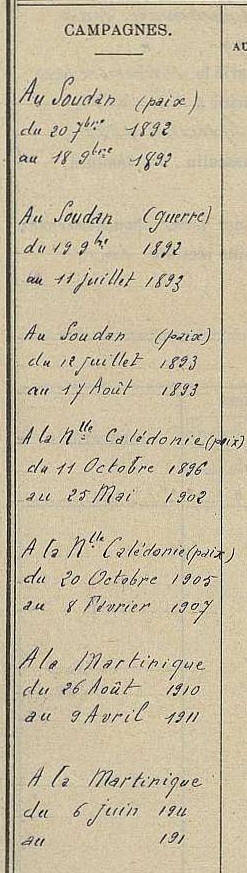 CAMPAGNES.
AU
Au Soudan (paix)
du 20 7bre 1892
au 18 9bre 1892
Au Soudan (guerre)
du 19 9bre 1892
au 11 juillet 1893
Au Soudan (paix)
du 12 juillet 1893
au 17 Août 1893
A la Nlle Calédonie (paix)
du 11 Octobre 1896
au 25 Mai 1902
A la Nlle Calédonie (paix)
du 20 Octobre 1905
au 8 Février 1907
A la Martinique
du 26 Août 1910
au 9 Avril 1911
A la Martinique
du 6 juin 1911
au 191